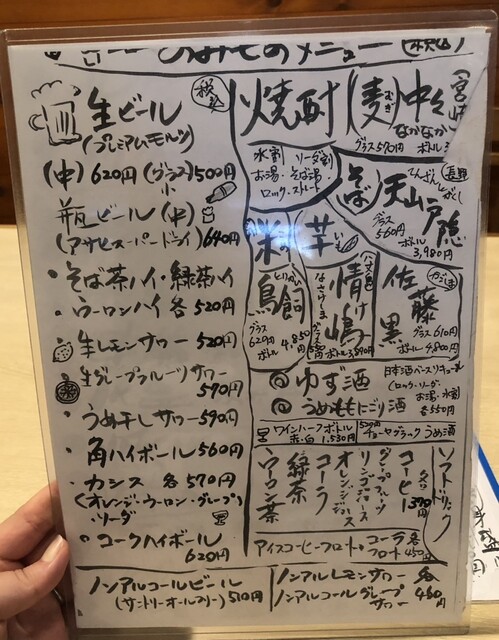 のみものメニュー
税込
生ビール
(プレミアムモルツ)
(中)620円(グラス)500円
小
瓶ビール(中)
(アサヒスーパードライ) 640円
・そば茶ハイ・緑茶ハイ
・ウーロンハイ 各520円
・生レモンサワー 520円
・生グレープフルーツサワー
570円
・うめ干しサワー 590円
・角ハイボール 560円
・カシス 各570円
(オレンジ・ウーロン・グレープ)
ソーダ
・コークハイボール
620円
ノンアルコールビール
(サントリーオールフリー) 510円
焼酎
(麦)むぎ
中々
なかなか
グラス570円
ボトル
水割 ソーダ割
お湯・そば湯
ロック・ストレート
そば
天山戸隠
てんざんとがくし
グラス
560円
ボトル
3,980円
米
鳥飼
とりかい
グラス
620円
ボトル
4,850円
芋
いも
情け嶋
なさけしま
グラス
ボトル3,890円
佐藤
黒
グラス610円
ボトル4,800円
ゆず酒
うめももにごり酒
日本酒ベースリキュール
(ロック・ソーダ
お湯・水割
各550円
ワインハーフボトル
赤・白 1,530円
520円
チョーヤブラックうめ酒
ソフトドリンク
各390円
コーヒー
グレープフルーツ
リンゴジュース
オレンジジュース
コーラ
緑茶
ウーロン茶
アイスコーヒーフロート・コーラフロート
各450円
ノンアルレモンサワー 各
ノンアルコールグレープ
サワー
480円